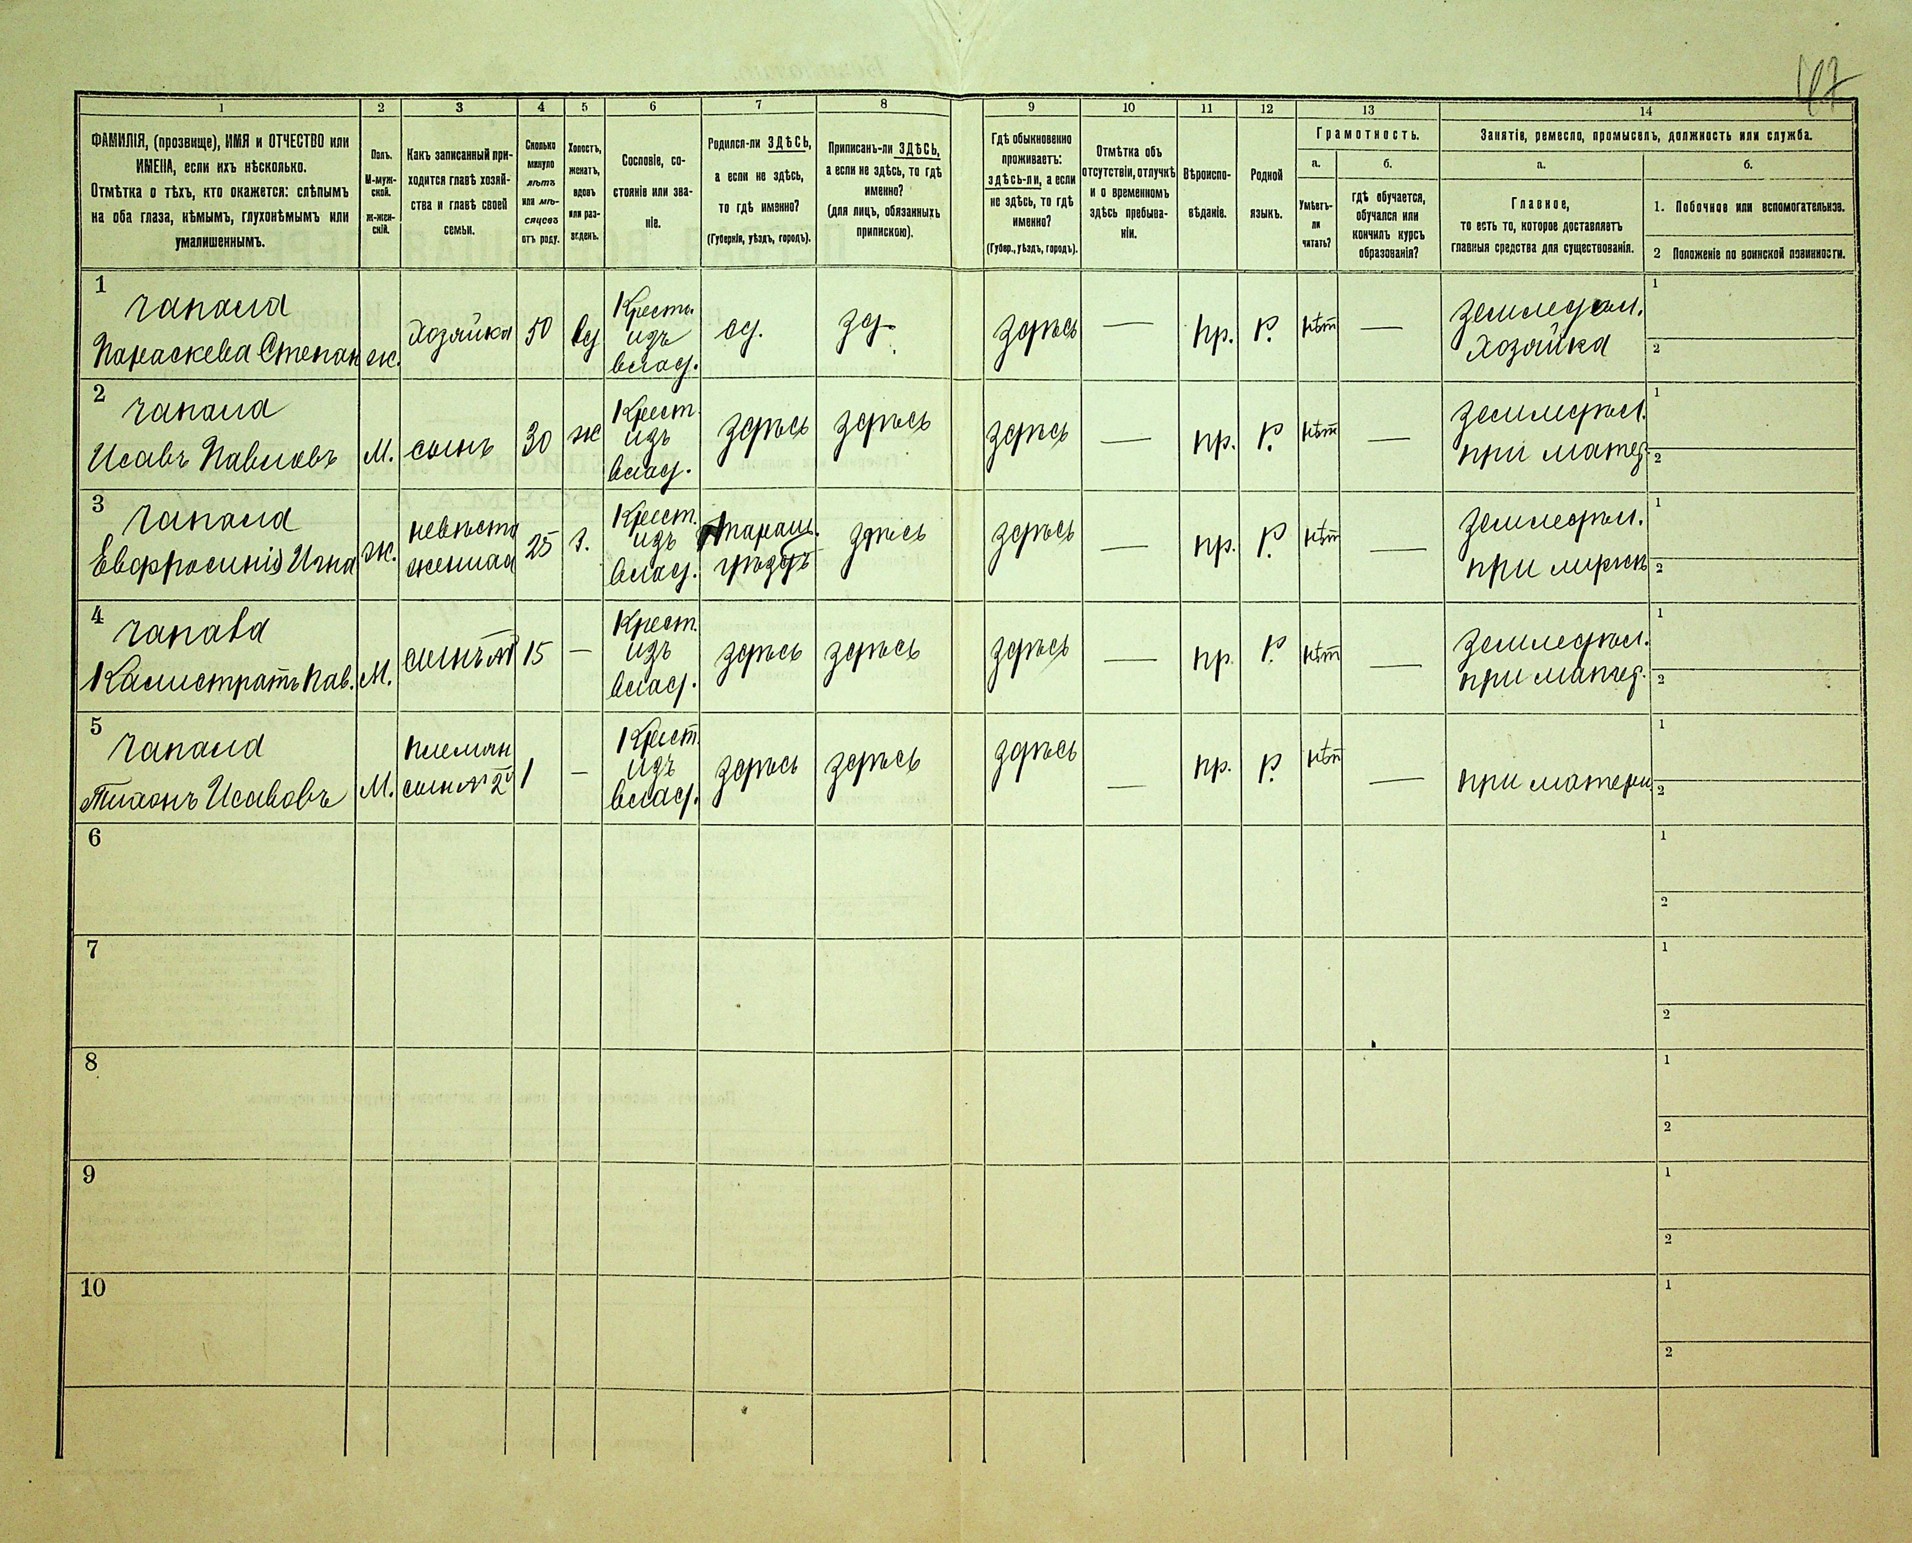 47
1 2 3 4 5 6 7 8 9 10 11 12 13 14
ФАМИЛІЯ, (прозвище), ИМЯ и ОТЧЕСТВО или
ИМЕНА, если ихъ нѣсколько.
Отмѣтка о тѣхъ, кто окажется: слѣпымъ
на оба глаза, нѣмымъ, глухонѣмымъ или
умалишеннымъ.
Полъ.
М-муж-
ской.
ж-жен-
скій.
Какъ записанный при-
ходится главѣ хозяй-
ства и главѣ своей
семьи.
Сколько
минуло
лѣтъ
или мѣ-
сяцевъ
отъ роду.
Холостъ,
женатъ,
вдовъ
или раз-
веденъ.
Сословіе, со-
стояніе или зва-
ніе.
Родился-ли ЗДѢСЬ,
а если не здѣсь,
то гдѣ именно?
(Губернія, уѣздъ, городъ).
Приписанъ-ли ЗДѢСЬ,
а если не здѣсь, то гдѣ
именно?
(для лицъ, обязанныхъ
припискою).
Гдѣ обыкновенно
проживаетъ:
здѣсь-ли, а если
не здѣсь, то гдѣ
именно?
(Губер., уѣздъ, городъ).
Отмѣтка объ
отсутствіи, отлучкѣ
и о временномъ
здѣсь пребыва-
ніи.
Вѣроиспо-
вѣданіе.
Родной
языкъ.
Грамотность.
а.
Умѣетъ-
ли
читать?
б.
гдѣ обучается,
обучался или
кончилъ курсъ
образованія?
Занятіе, ремесло, промыселъ, должность или служба.
а.
Главное,
то есть то, которое доставляетъ
главныя средства для существованія.
б.
1. Побочное или вспомогательное.
2 Положеніе по воинской повинности.
1
Чапала
Параскева Степан
ж.
Хозяйка
50
вд
Крестн.
изъ
влад.
зд.
зд.
здѣсь
—
пр.
Р.
нѣт
—
Земледѣл.
Хозяйка
1
2
2
Чапала
Исавъ Павловъ
М.
сынъ
30
ж
Крест.
изъ
влад.
здѣсь
здѣсь
здѣсь
—
пр.
Р.
нѣт
—
Земледѣл.
при матер.
1
2
3
Чапала
Евфросинія Игна
ж.
невѣста
жена
25
з.
Крест.
изъ
влад.
Таращ.
уѣздъ
здѣсь
здѣсь
—
пр.
Р.
нѣт
—
Земледѣл.
при мужѣ
1
2
4
Чапала
Калистратъ Пав.
М.
сынъ
15
—
Крест.
изъ
влад.
здѣсь
здѣсь
здѣсь
—
пр.
Р.
нѣт
—
Земледѣл.
при матер.
1
2
5
Чапала
Тихонъ Исавовъ
М.
племян
сын № 2й
1
—
Крест.
изъ
влад.
здѣсь
здѣсь
здѣсь
—
пр.
Р.
нѣт
—
при матери
1
2
6
1
2
7
1
2
8
1
2
9
1
2
10
1
2